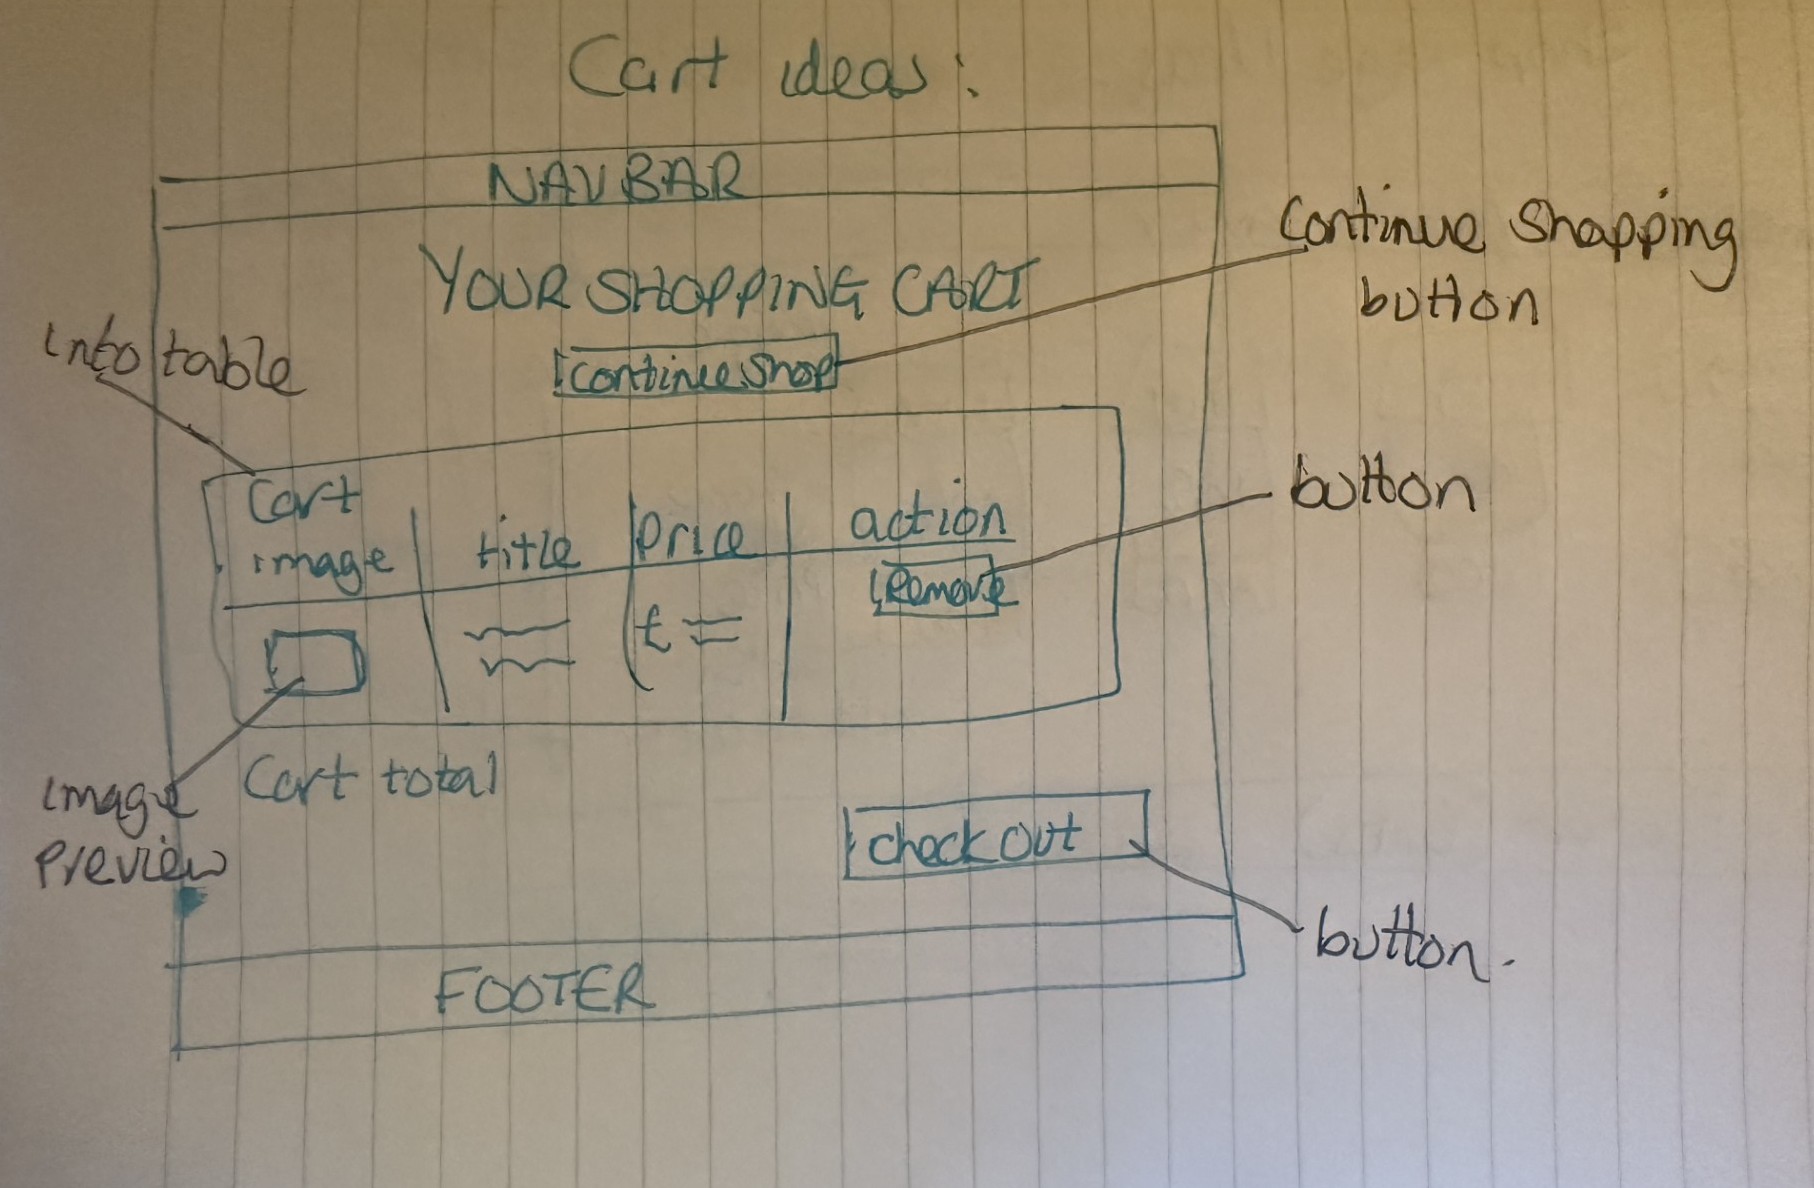 Cart ideas:
NAVBAR
YOUR SHOPPING CART
Continue Shopping
button
Continue Shop
info table
Cart
image
title
Price
action
button
Remove
£
Cart total
image
Preview
check out
button.
FOOTER